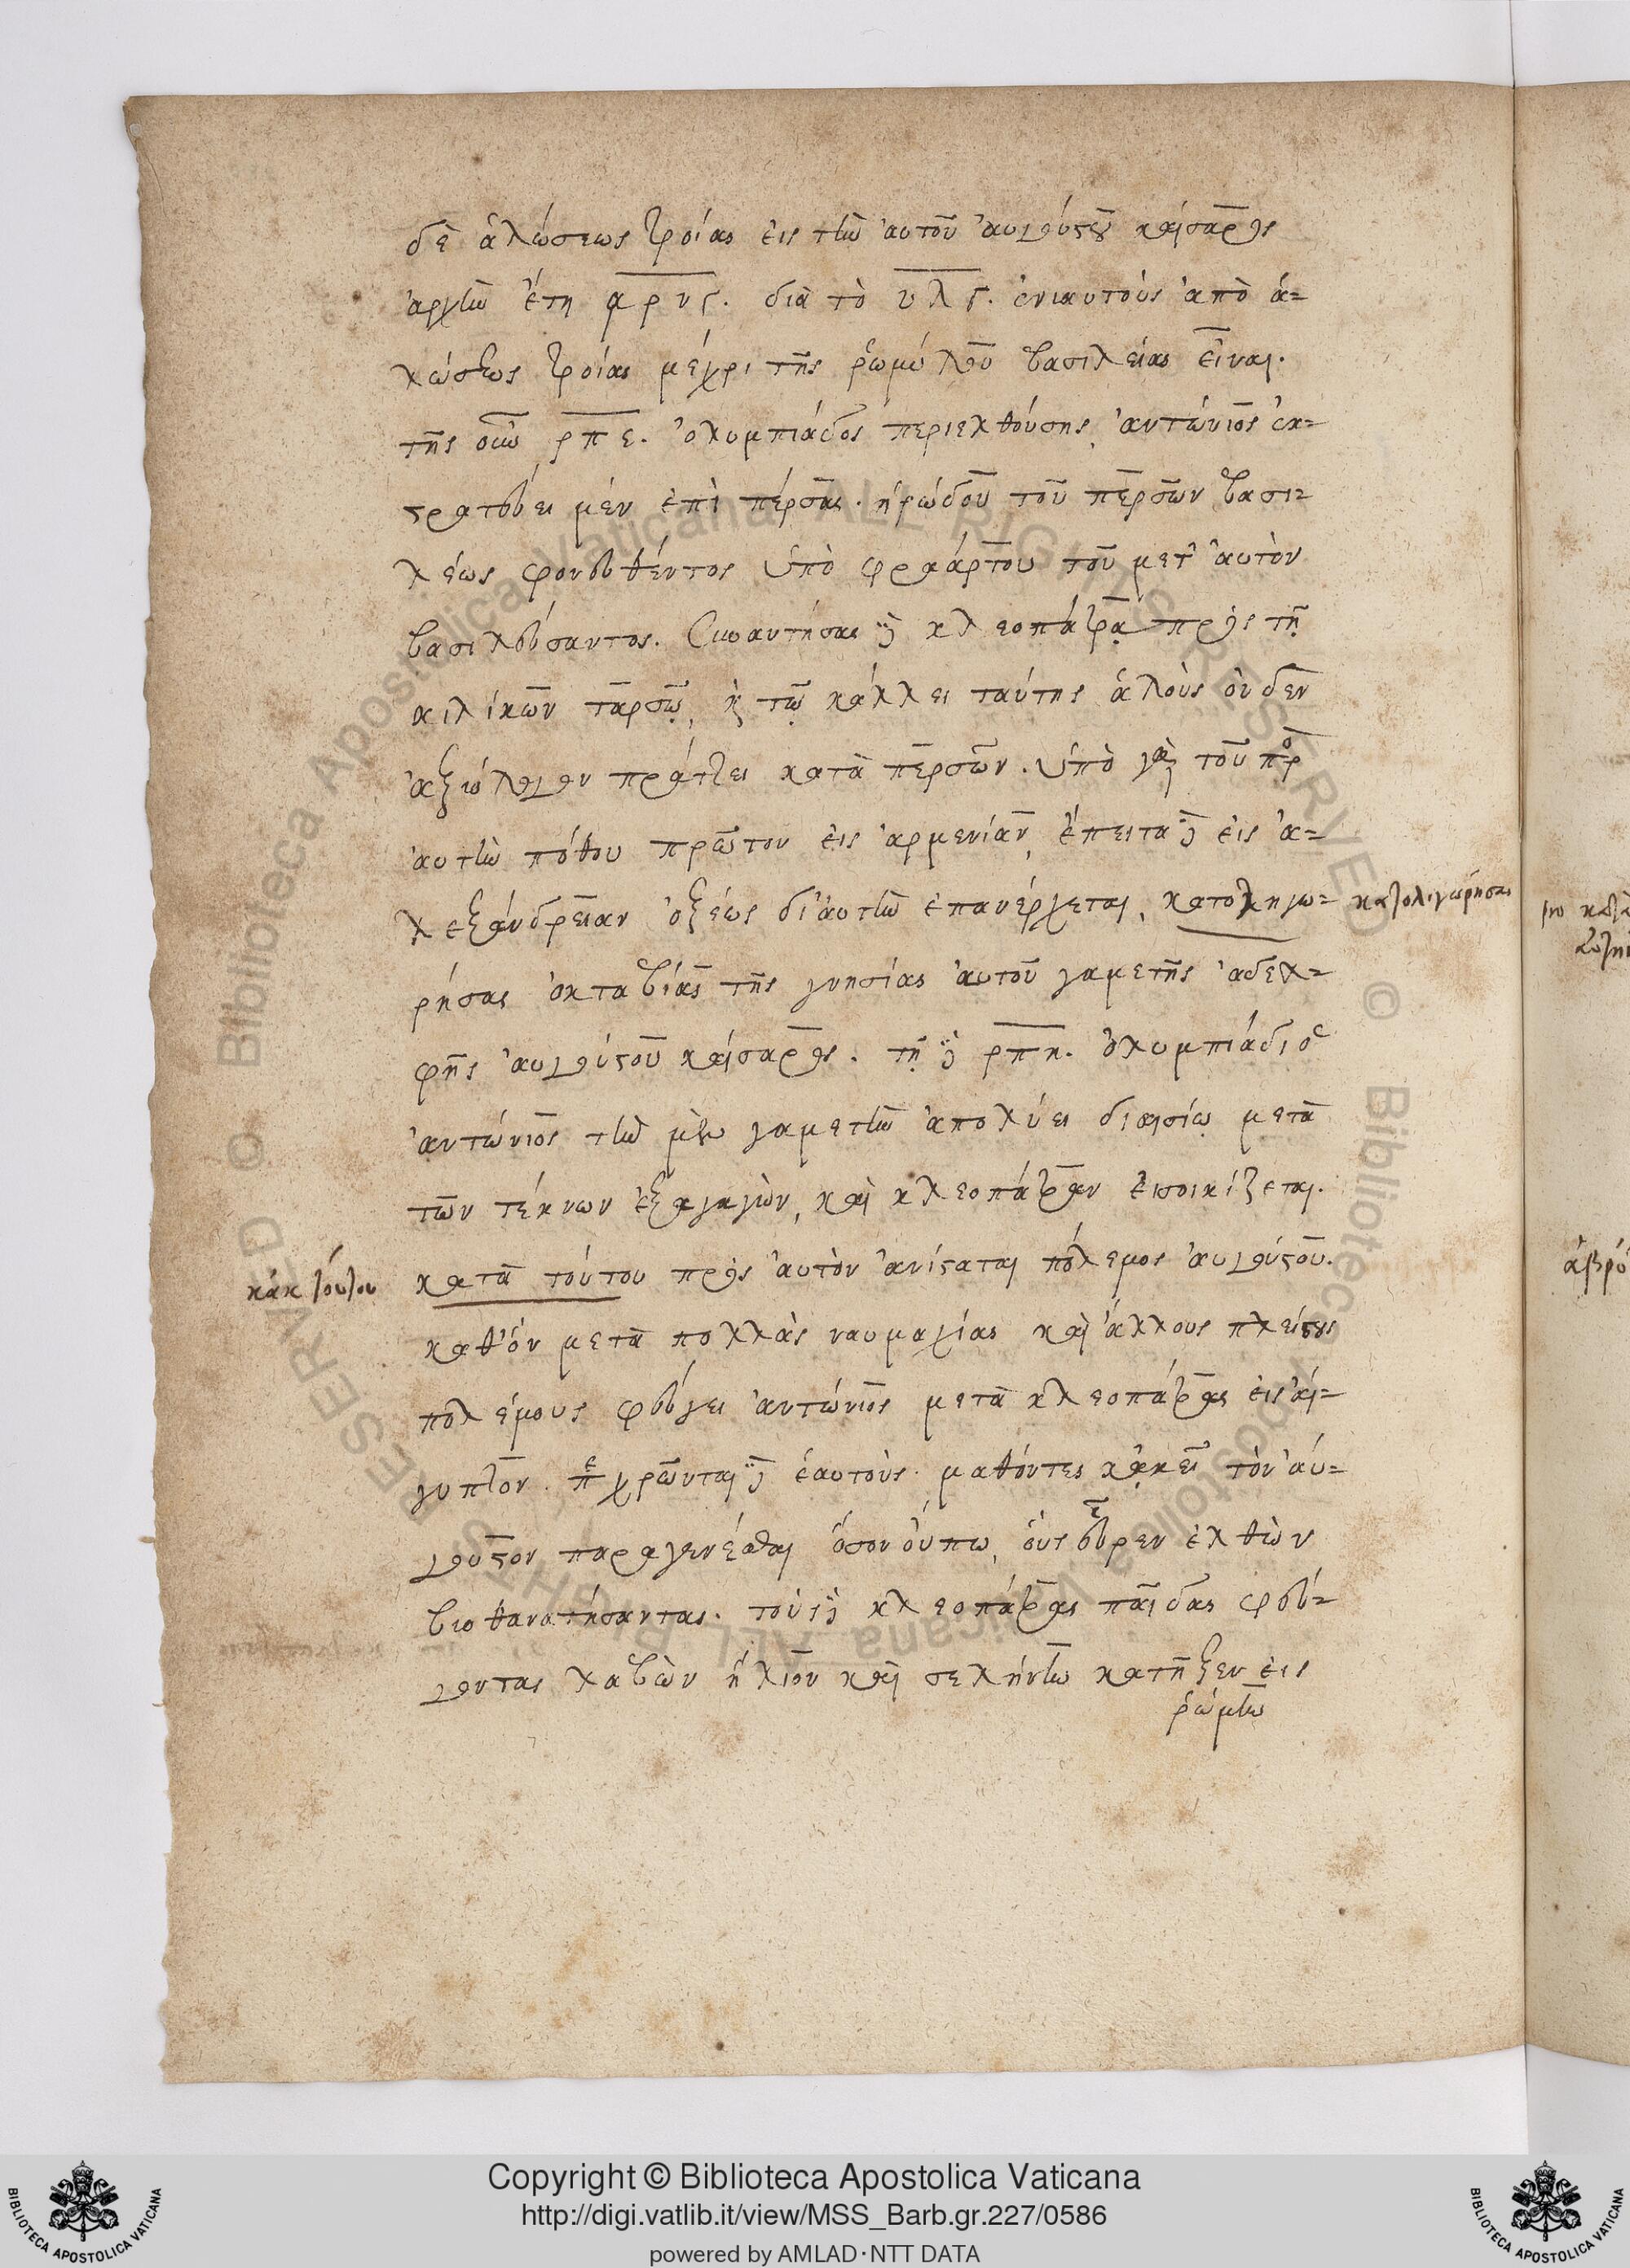 δὲ ἁλώσεως τροίας εἰς τὴν αὐτοῦ αὐγούστου καίσαρος
ἀρχὴν ἔτη αρνϛ. διὰ τὸ υλϛ. ἐνιαυτοὺς ἀπὸ ἁ-
λώσεως τροίας μέχρι τῆς ῥωμύλου βασιλείας εἶναι.
τῆς οὖν ρπε. ὀλυμπιάδος περιελθούσης, ἀντώνιος ἐκ-
στρατεύει μὲν ἐπὶ πέρσας. ἡρώδου τοῦ περσῶν βασι-
λέως φονευθέντος ὑπὸ φραάρτου τοῦ μετ' αὐτὸν
βασιλεύσαντος. συναντήσας δὲ κλεοπάτρᾳ πρὸς τῇ
κιλίκων ταρσῷ, καὶ τῷ κάλλει ταύτης ἁλοὺς οὐδὲν
ἀξιόλογον πράττει κατὰ περσῶν. ὑπὸ γὰρ τοῦ πρ
αὐτὴν πόθου πρῶτον εἰς ἀρμενίαν, ἔπειτα δὲ εἰς ἀ-
λεξάνδρειαν ὀξέως δι' αὐτὴν ἐπανέρχεται, κατολιγω- κατολιγωρήσας
ρήσας ὀκταβίας τῆς γνησίας αὐτοῦ γαμετῆς ἀδελ-
φῆς αὐγούστου καίσαρος. τῇ δὲ ρπη. ὀλυμπιάδι ὁ
ἀντώνιος τὴν μὲν γαμετὴν ἀπολύει διαισίῳ μετὰ
τῶν τέκνων ἐξαγαγὼν, καὶ κλεοπάτραν εἰσοικίζεται.
κἀκ τούτου κατὰ τούτου πρὸς αὐτὸν ἀνίσταται πόλεμος αὐγούστου.
καθ' ὃν μετὰ πολλὰς ναυμαχίας καὶ ἄλλους πλείστους
πολέμους φεύγει ἀντώνιος μετὰ κλεοπάτρας εἰς αἴ-
γυπτον. χρῶνται δὲ ἑαυτοὺς μαθόντες κἀκεῖ τὸν αὔ-
γουστον παραγενέσθαι ὅσον οὔπω, οὓς εὗρεν ἐλθὼν
βιοθανατήσαντας. τοὺς δὲ κλεοπάτρας παῖδας φεύ-
γοντας λαβὼν ἥλιον καὶ σελήνην κατῆξεν εἰς
ῥώμην
Copyright © Biblioteca Apostolica Vaticana
http://digi.vatlib.it/view/MSS_Barb.gr.227/0586
powered by AMLAD·NTT DATA